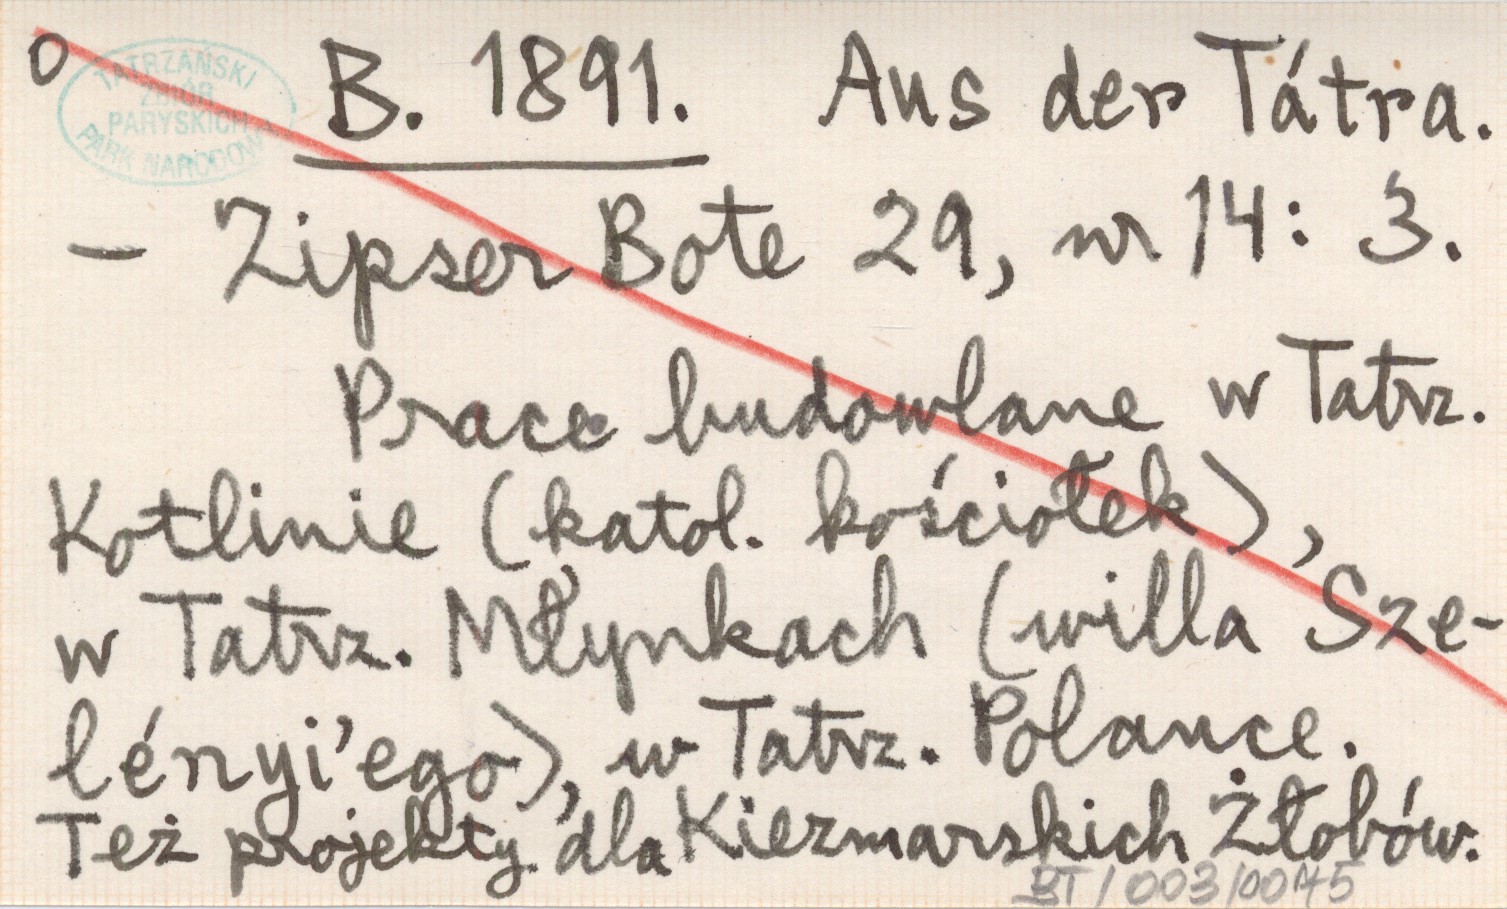 O
TATRZAŃSKI
ZBIÓR
PARYSKICH
PARK NARODOWY
B. 1891. Aus der Tátra.
– Zipser Bote 29, nr 14: 3.
Prace budowlane w Tatrz.
Kotlinie (katol. kościołek),
w Tatrz. Młynkach (willa Sze-
lényi'ego), w Tatrz. Polance.
Też projekty dla Kiezmarskich Żłobów.
BT/003/0045